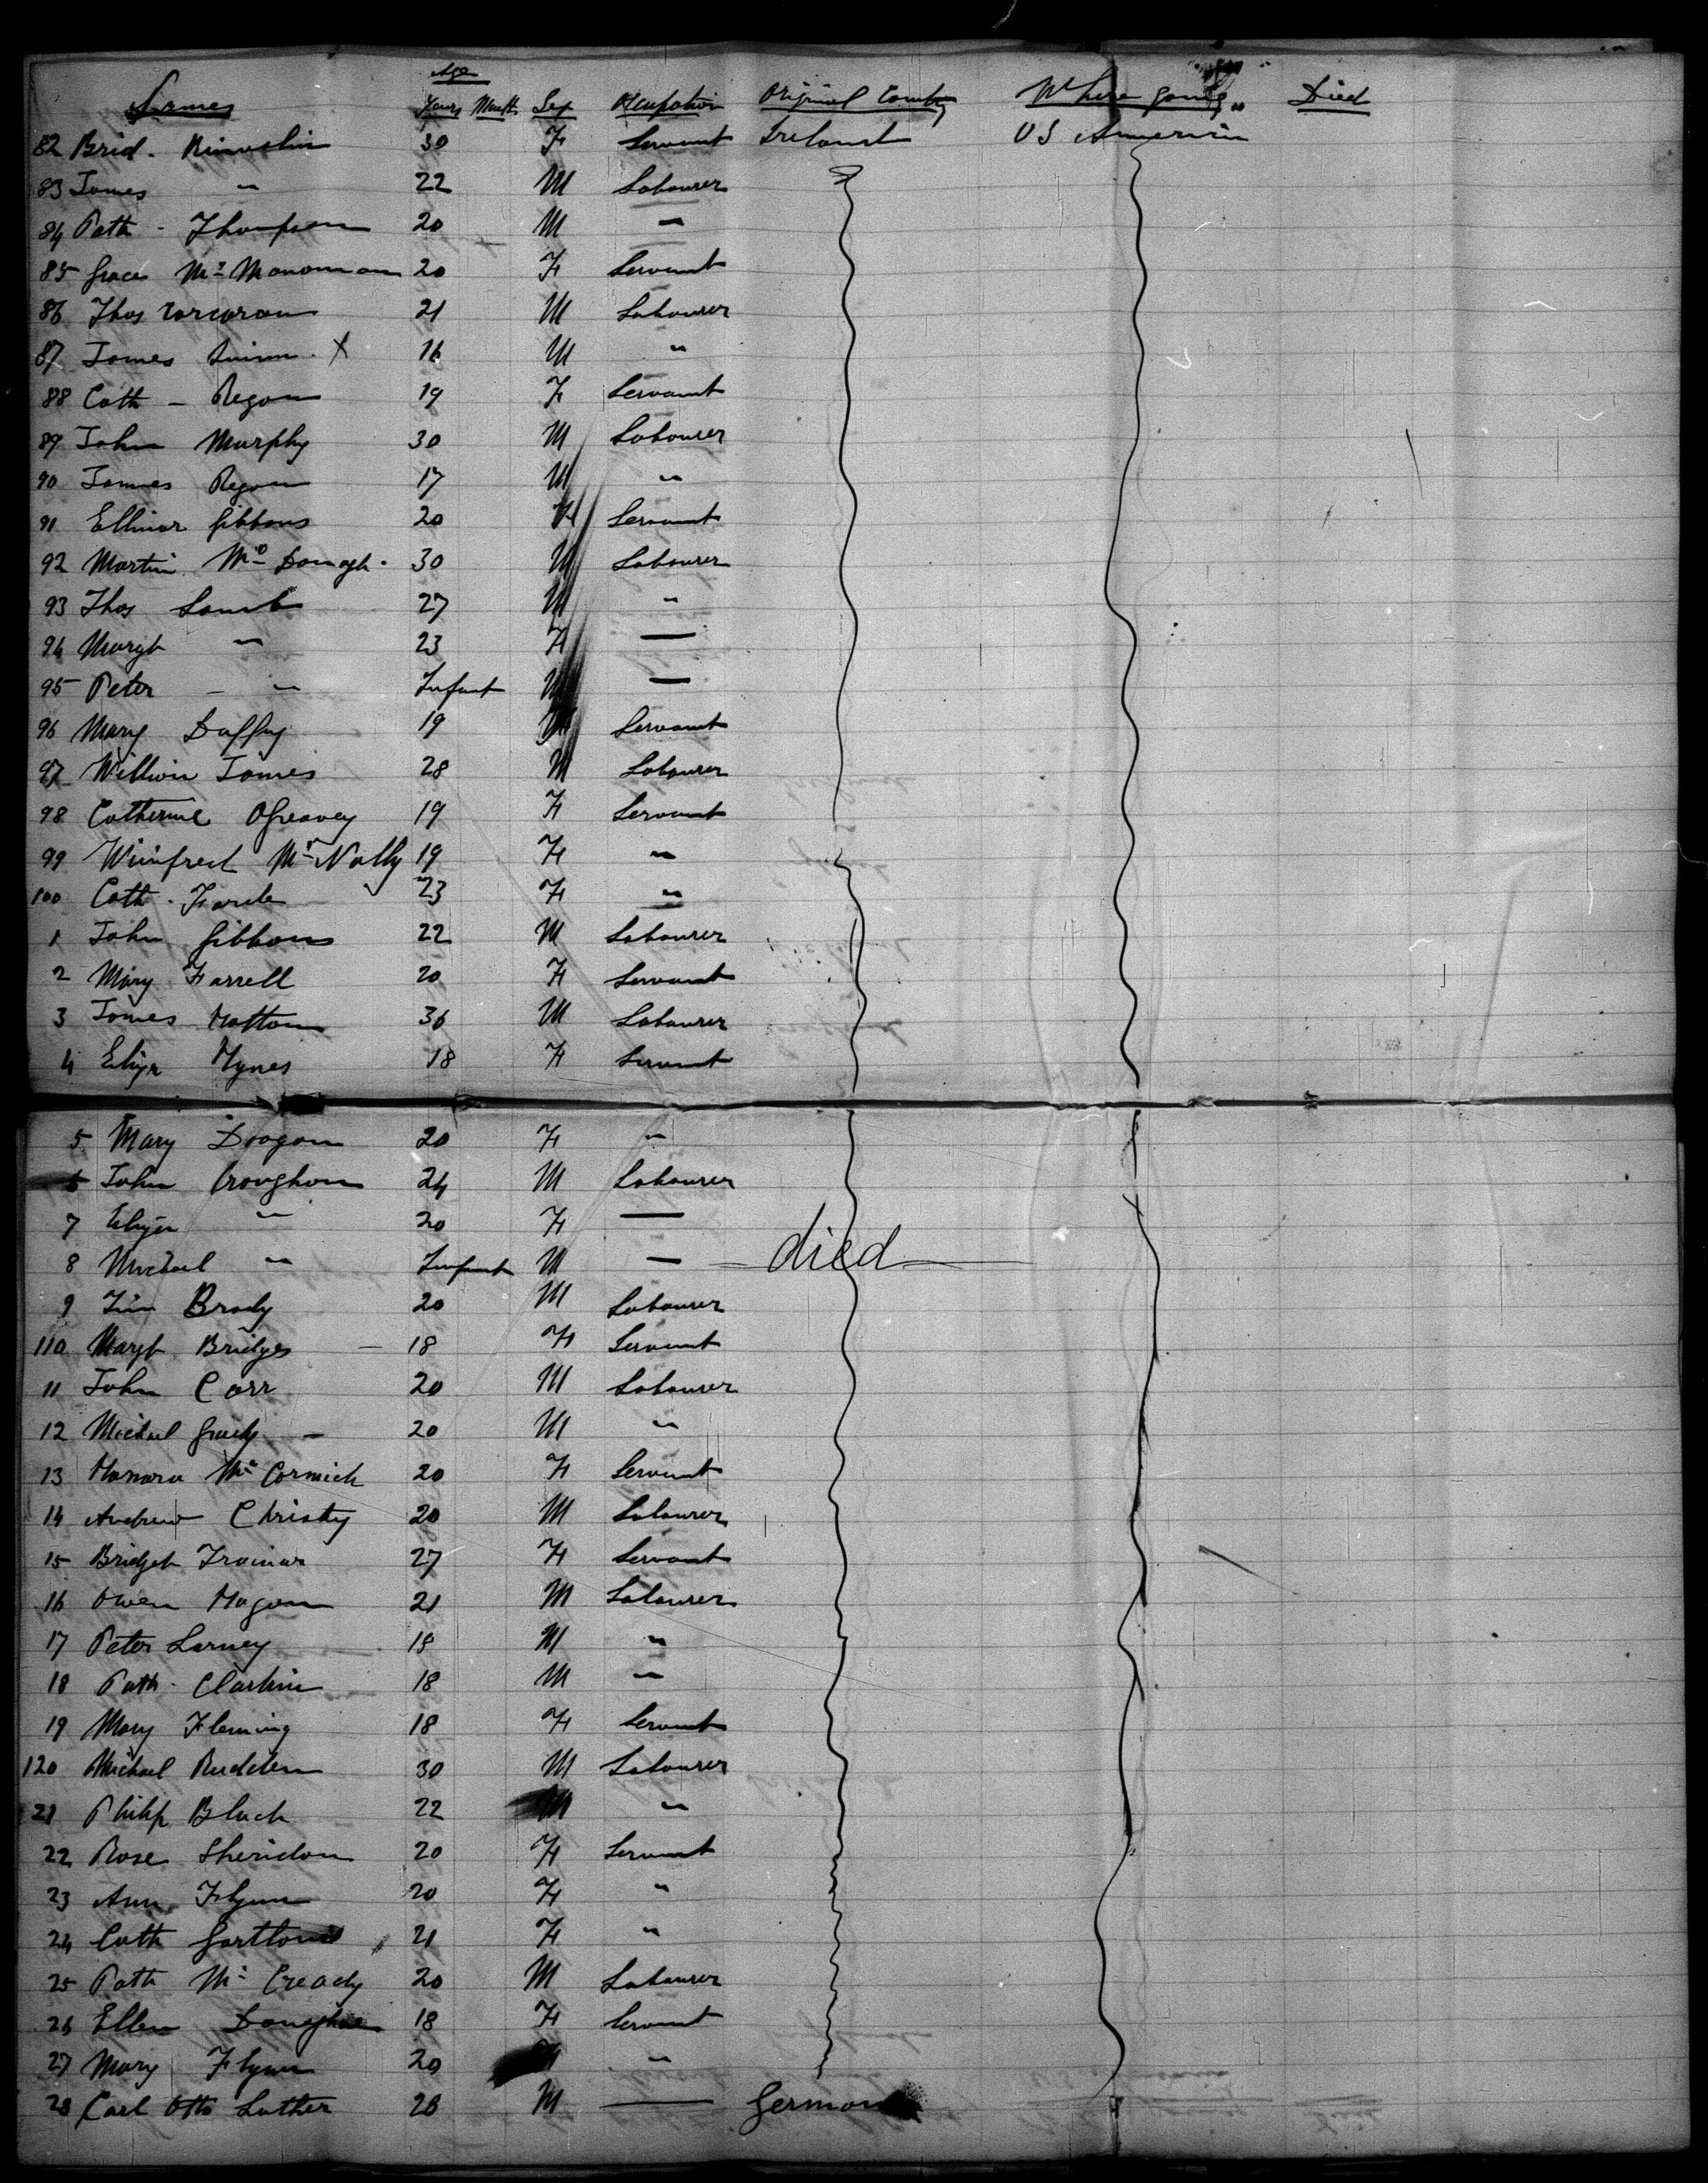 Age
Names Years Month Sex Occupation Original Country Where going Died
82 Brid. 30 F Servant Ireland US America
83 James " 22 M Labourer
84 Patk - Thompson 20 M "
85 Grace Mc Manoman 20 F Servant
86 Thos Corcoran 21 M Labourer
87 James Quinn X 16 M "
88 Cath - Regan 19 F Servant
89 John Murphy 30 M Labourer
90 James Regan 17 M "
91 Ellinor Gibbons 20 F Servant
92 Martin Mc Donagh 30 M Labourer
93 Thos Lamb 27 M "
94 Margt " 23 F —
95 Peter - " Infant M —
96 Mary Duffy 19 F Servant
97 William James 28 M Labourer
98 Catherine 19 F Servant
99 Winifred Mc Nally 19 F "
100 Cath. 23 F "
1 John Gibbons 22 M Labourer
2 Mary Farrell 20 F Servant
3 James Hattan 36 M Labourer
4 Eliza Hynes 18 F Servant
5 Mary Drogan 20 F "
6 John Croughan 24 M Labourer
7 Eliza " 20 F —
8 Michael " Infant M — died
9 Tim Brady 20 M Labourer
110 Margt Bridges - 18 F Servant
11 John Carr 20 M Labourer
12 Michael Grady - 20 M "
13 Honora Mc Cormick 20 F Servant
14 Andrew Christy 20 M Labourer
15 Bridget Trainor 27 F Servant
16 Owen Hagan 21 M Labourer
17 Peter Larney M "
18 Patk. Clarkin 18 M "
19 Mary Fleming 18 F Servant
120 Michael Rudden 30 M Labourer
21 Philip Black 22 M "
22 Rose Sheridan 20 F Servant
23 Ann Flynn 20 F "
24 Cath Gartland 21 F "
25 Patk Mc Cready 20 M Labourer
26 Ellen Donaghue 18 F Servant
27 Mary Flynn 20 F "
28 Carl Otto Luther 28 M — German